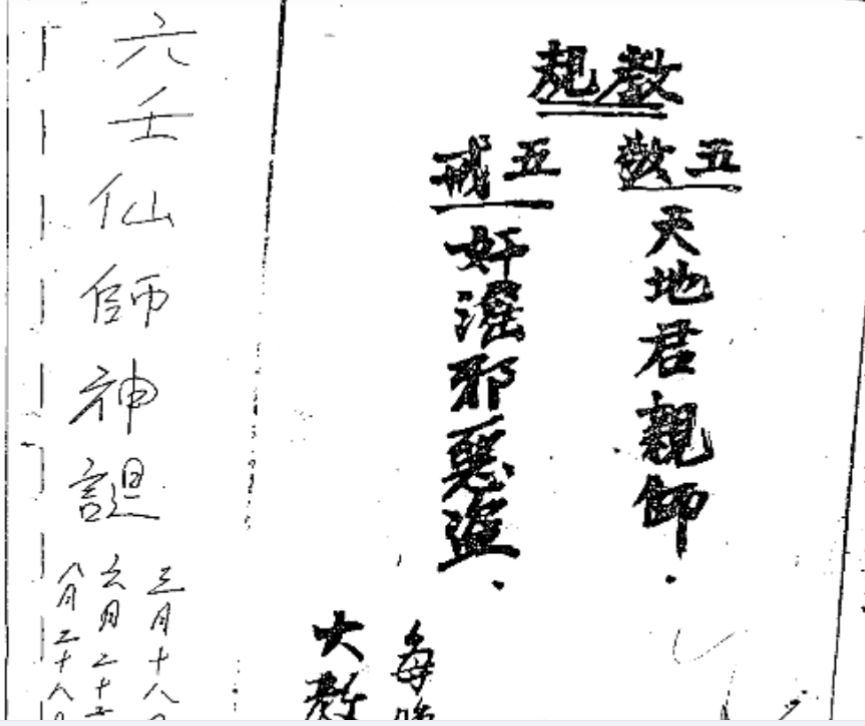 教規
五敬
天地君親師.
五戒
奸淫邪惡盜.
每
大教
六壬仙師神誕
三月十八日
六月二十
八月二十八日